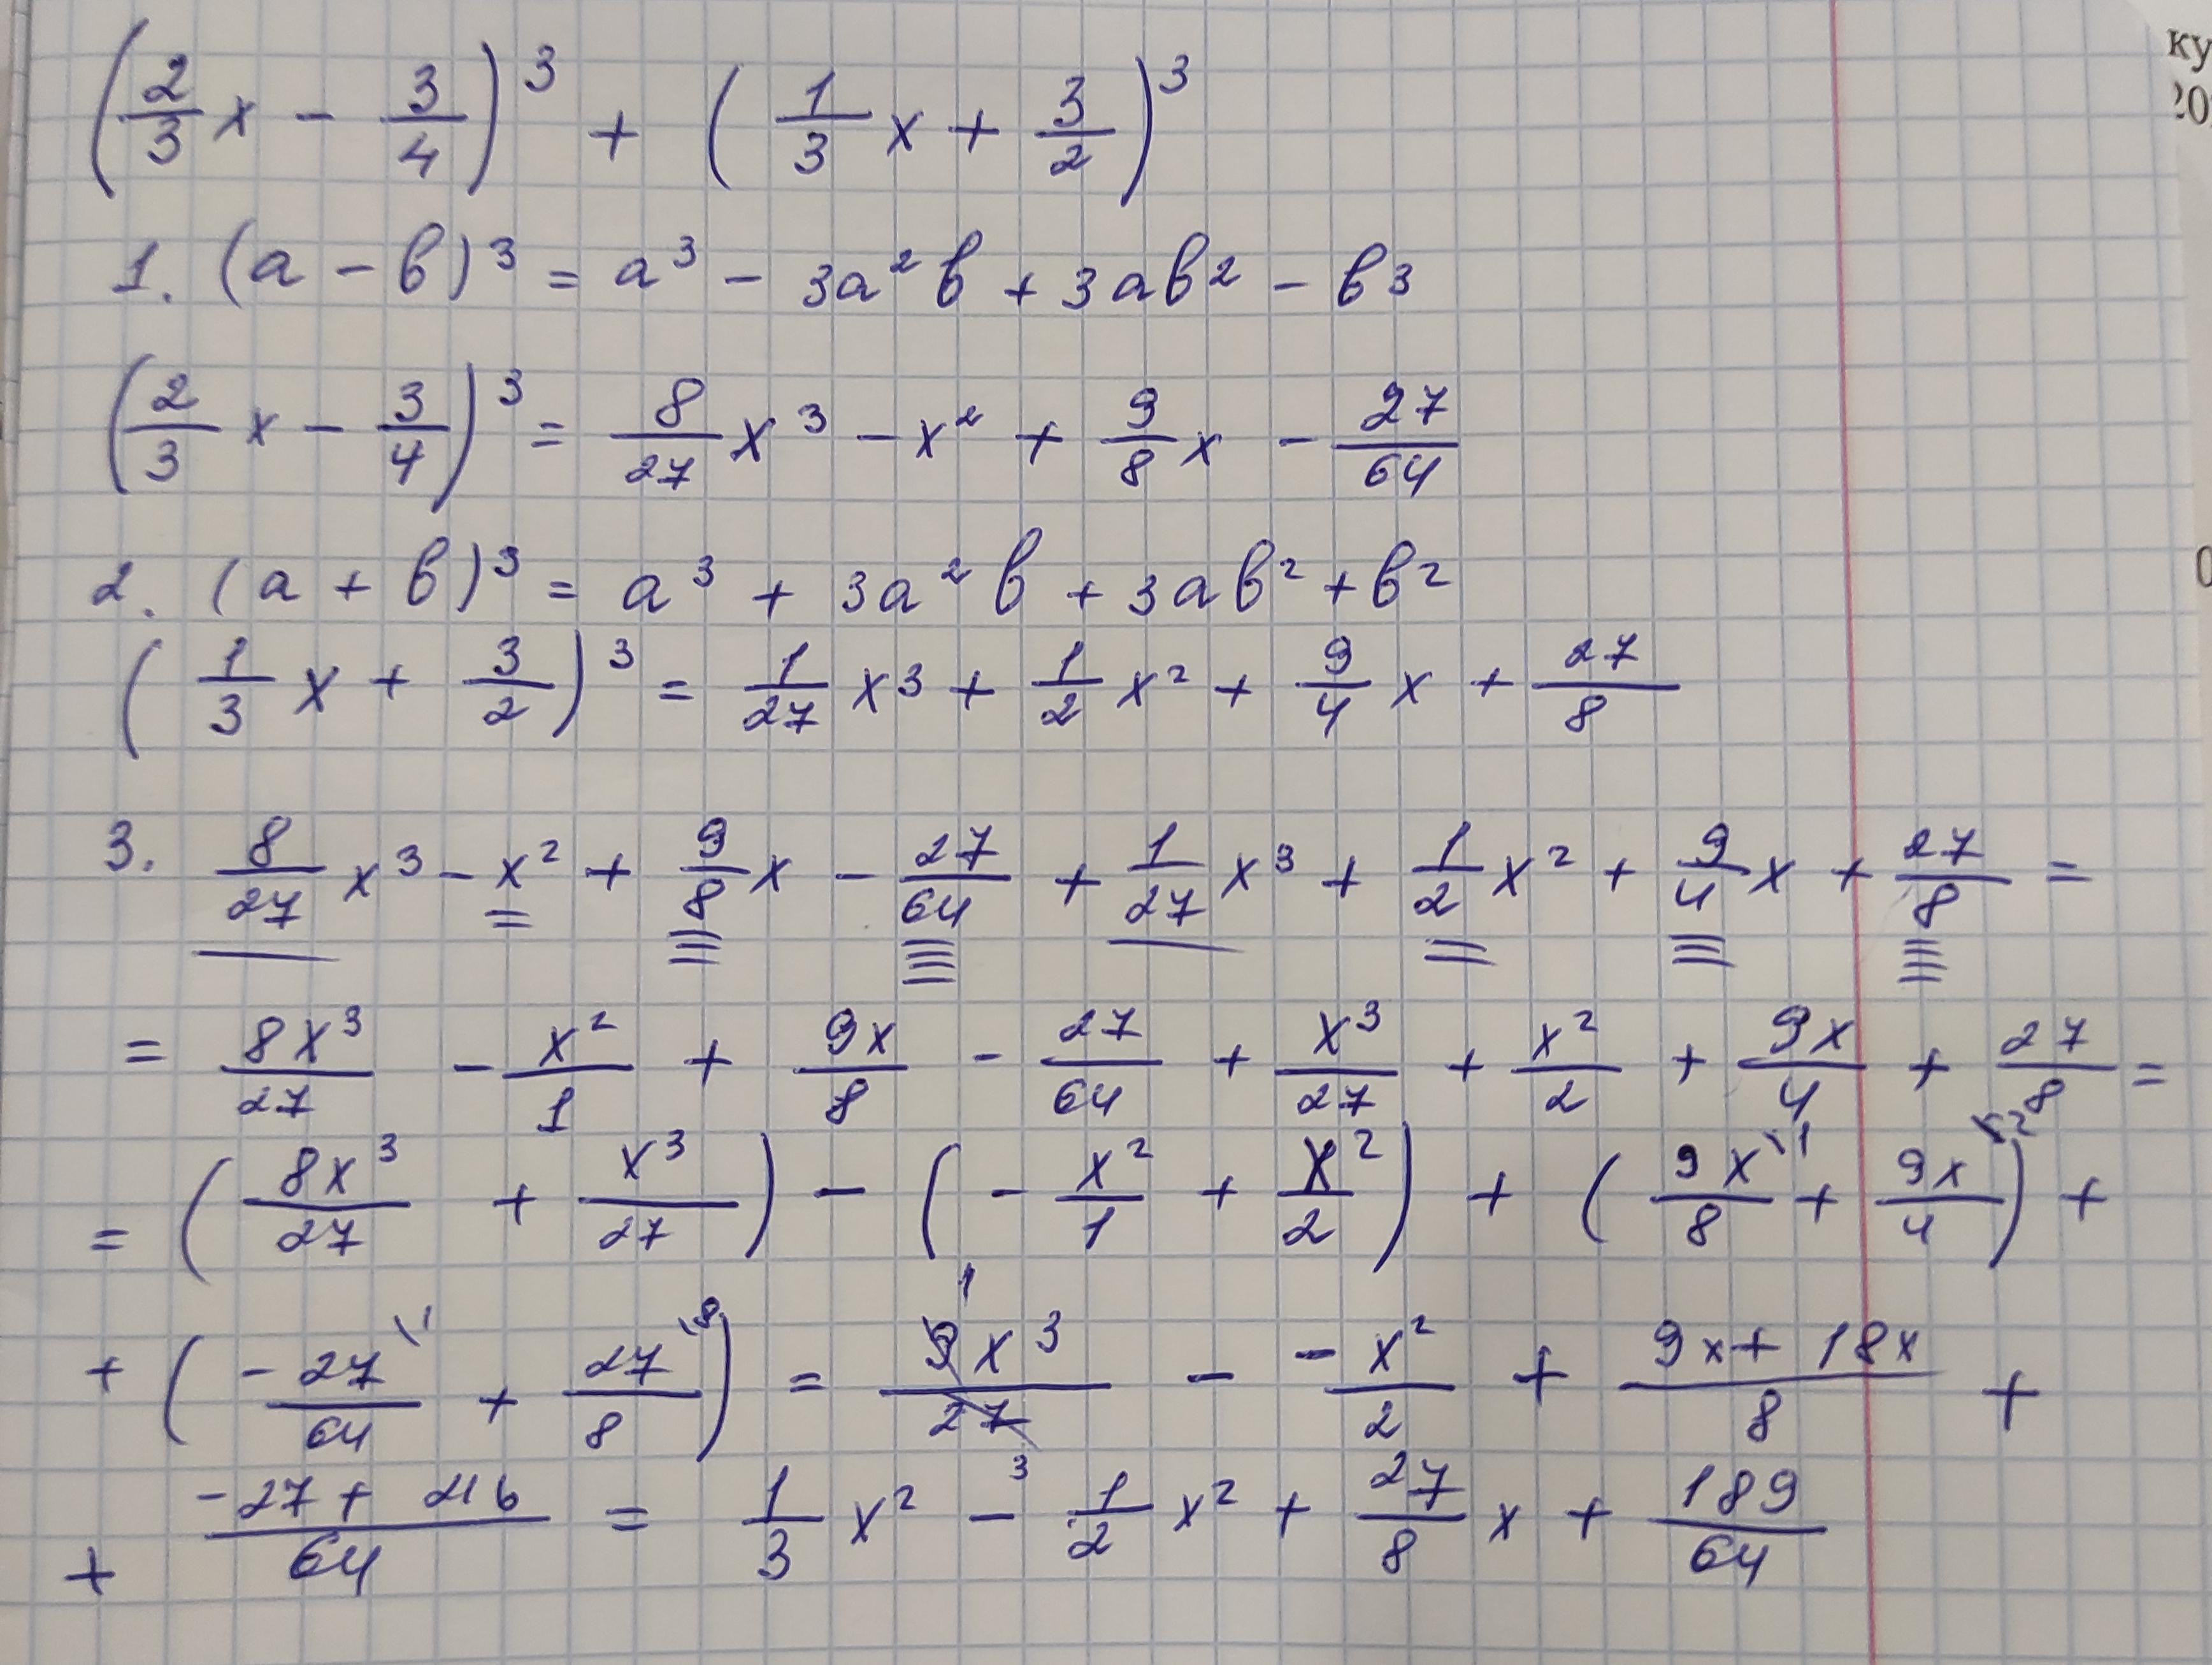 (2/3 x - 3/4)³ + (1/3 x + 3/2)³
1. (a - b)³ = a³ - 3a²b + 3ab² - b³
(2/3 x - 3/4)³ = 8/27 x³ - x² + 9/8 x - 27/64
2. (a + b)³ = a³ + 3a²b + 3ab² + b²
(1/3 x + 3/2)³ = 1/27 x³ + 1/2 x² + 9/4 x + 27/8
3. 8/27 x³ - x² + 9/8 x - 27/64 + 1/27 x³ + 1/2 x² + 9/4 x + 27/8 =
= 8x³/27 - x²/1 + 9x/8 - 27/64 + x³/27 + x²/2 + 9x/4 + 27/8 =
= (8x³/27 + x³/27) - (- x²/1 + x²/2) + (9x\1/8 + 9x\2/4) +
+ (-27\1/64 + 27\8/8) = 9x³/27 1 3 - -x²/2 + 9x + 18x/8 +
+ -27 + 216/64 = 1/3 x² - 1/2 x² + 27/8 x + 189/64
ку
20
0